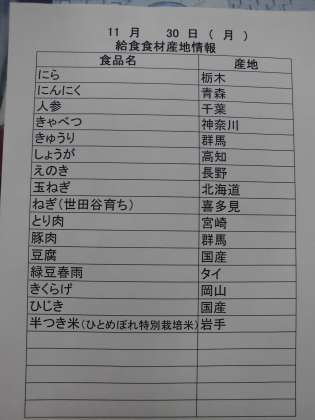 11 月 30 日 ( 月 )
給食食材産地情報
食品名 産地
にら 栃木
にんにく 青森
人参 千葉
きゃべつ 神奈川
きゅうり 群馬
しょうが 高知
えのき 長野
玉ねぎ 北海道
ねぎ(世田谷育ち) 喜多見
とり肉 宮崎
豚肉 群馬
豆腐 国産
緑豆春雨 タイ
きくらげ 岡山
ひじき 国産
半つき米(ひとめぼれ特別栽培米) 岩手